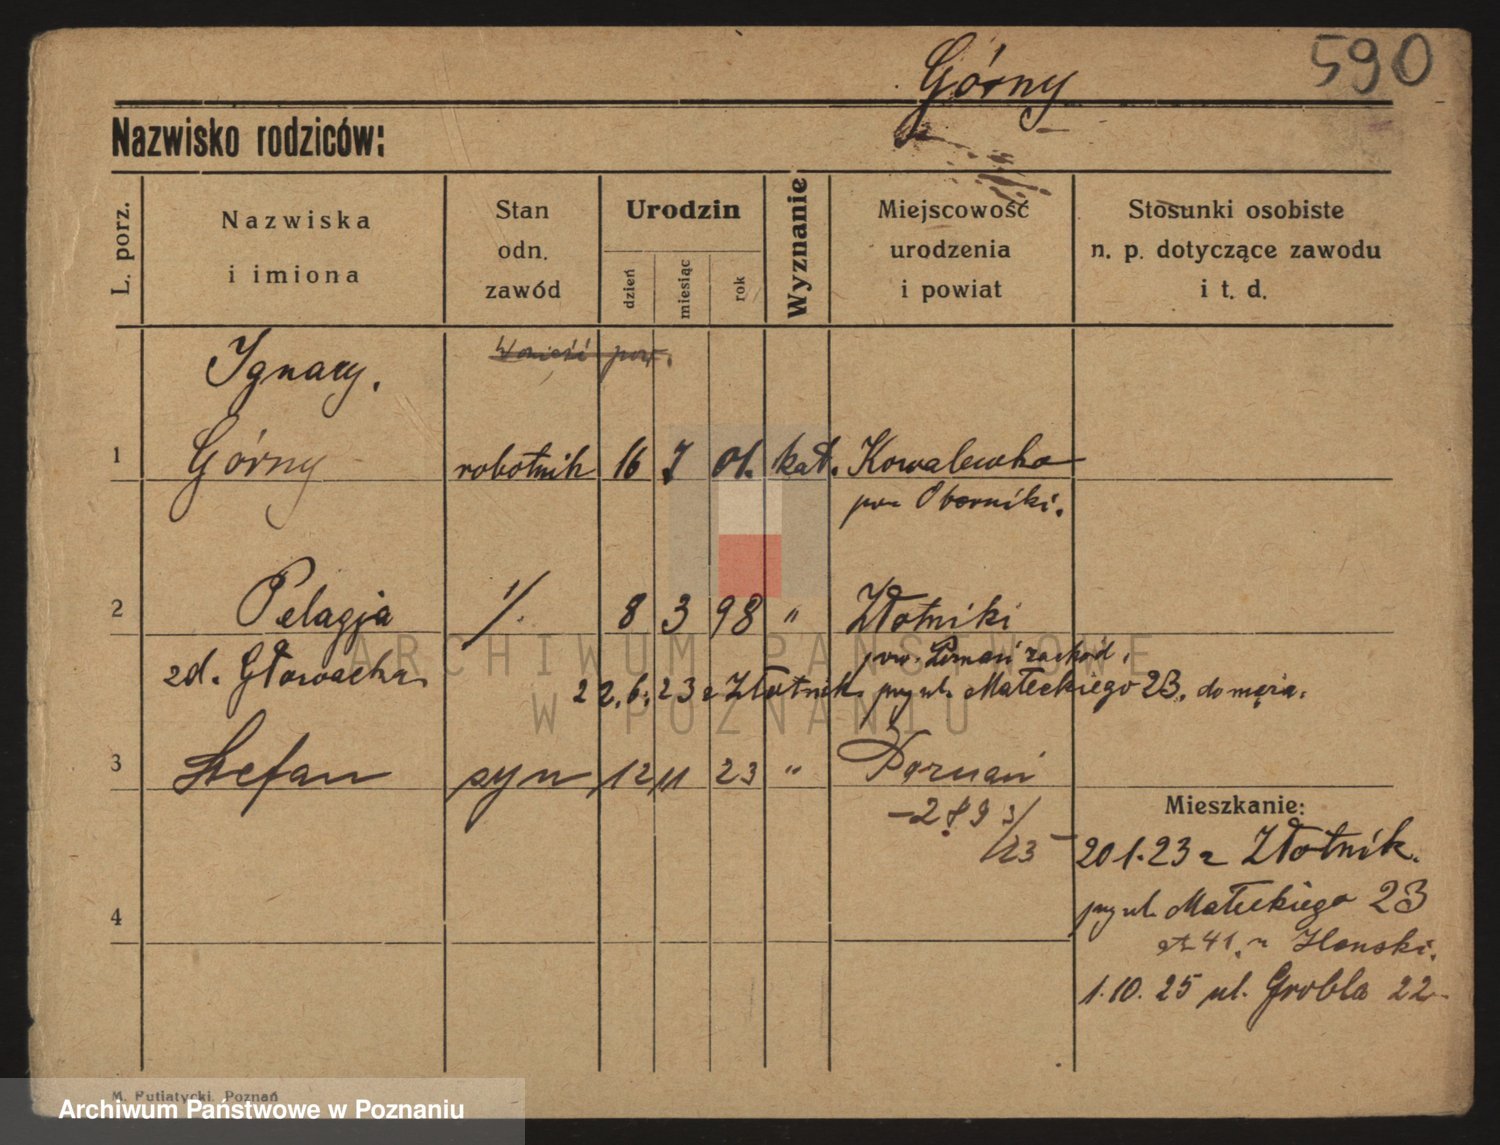 590
Górny
Nazwisko rodziców:
L. porz.
Nazwiska
i imiona
Stan
odn.
zawód
Urodzin
dzień
miesiąc
rok
Wyznanie
Miejscowość
urodzenia
i powiat
Stosunki osobiste
n. p. dotyczące zawodu
i t. d.
pow.
Ignacy.
1 Górny robotnik 16 7 01. kat. Kowalewko
pow Oborniki.
2 Pelagja ż/. 8 3 98 " Złotniki
zd. Głowacka pow. Poznań zachód.
22.6.23 z Złotnik przy ul. Małeckiego 23. do męża.
3 Stefan syn 12 11 23 " Poznań
Mieszkanie:
20 1.23 z Złotnik.
przy ul. Małeckiego 23
4
1.10.25 ul. Grobla 22
M. Putiatycki, Poznań
ARCHIWUM PAŃSTWOWE
W POZNANIU
Archiwum Państwowe w Poznaniu